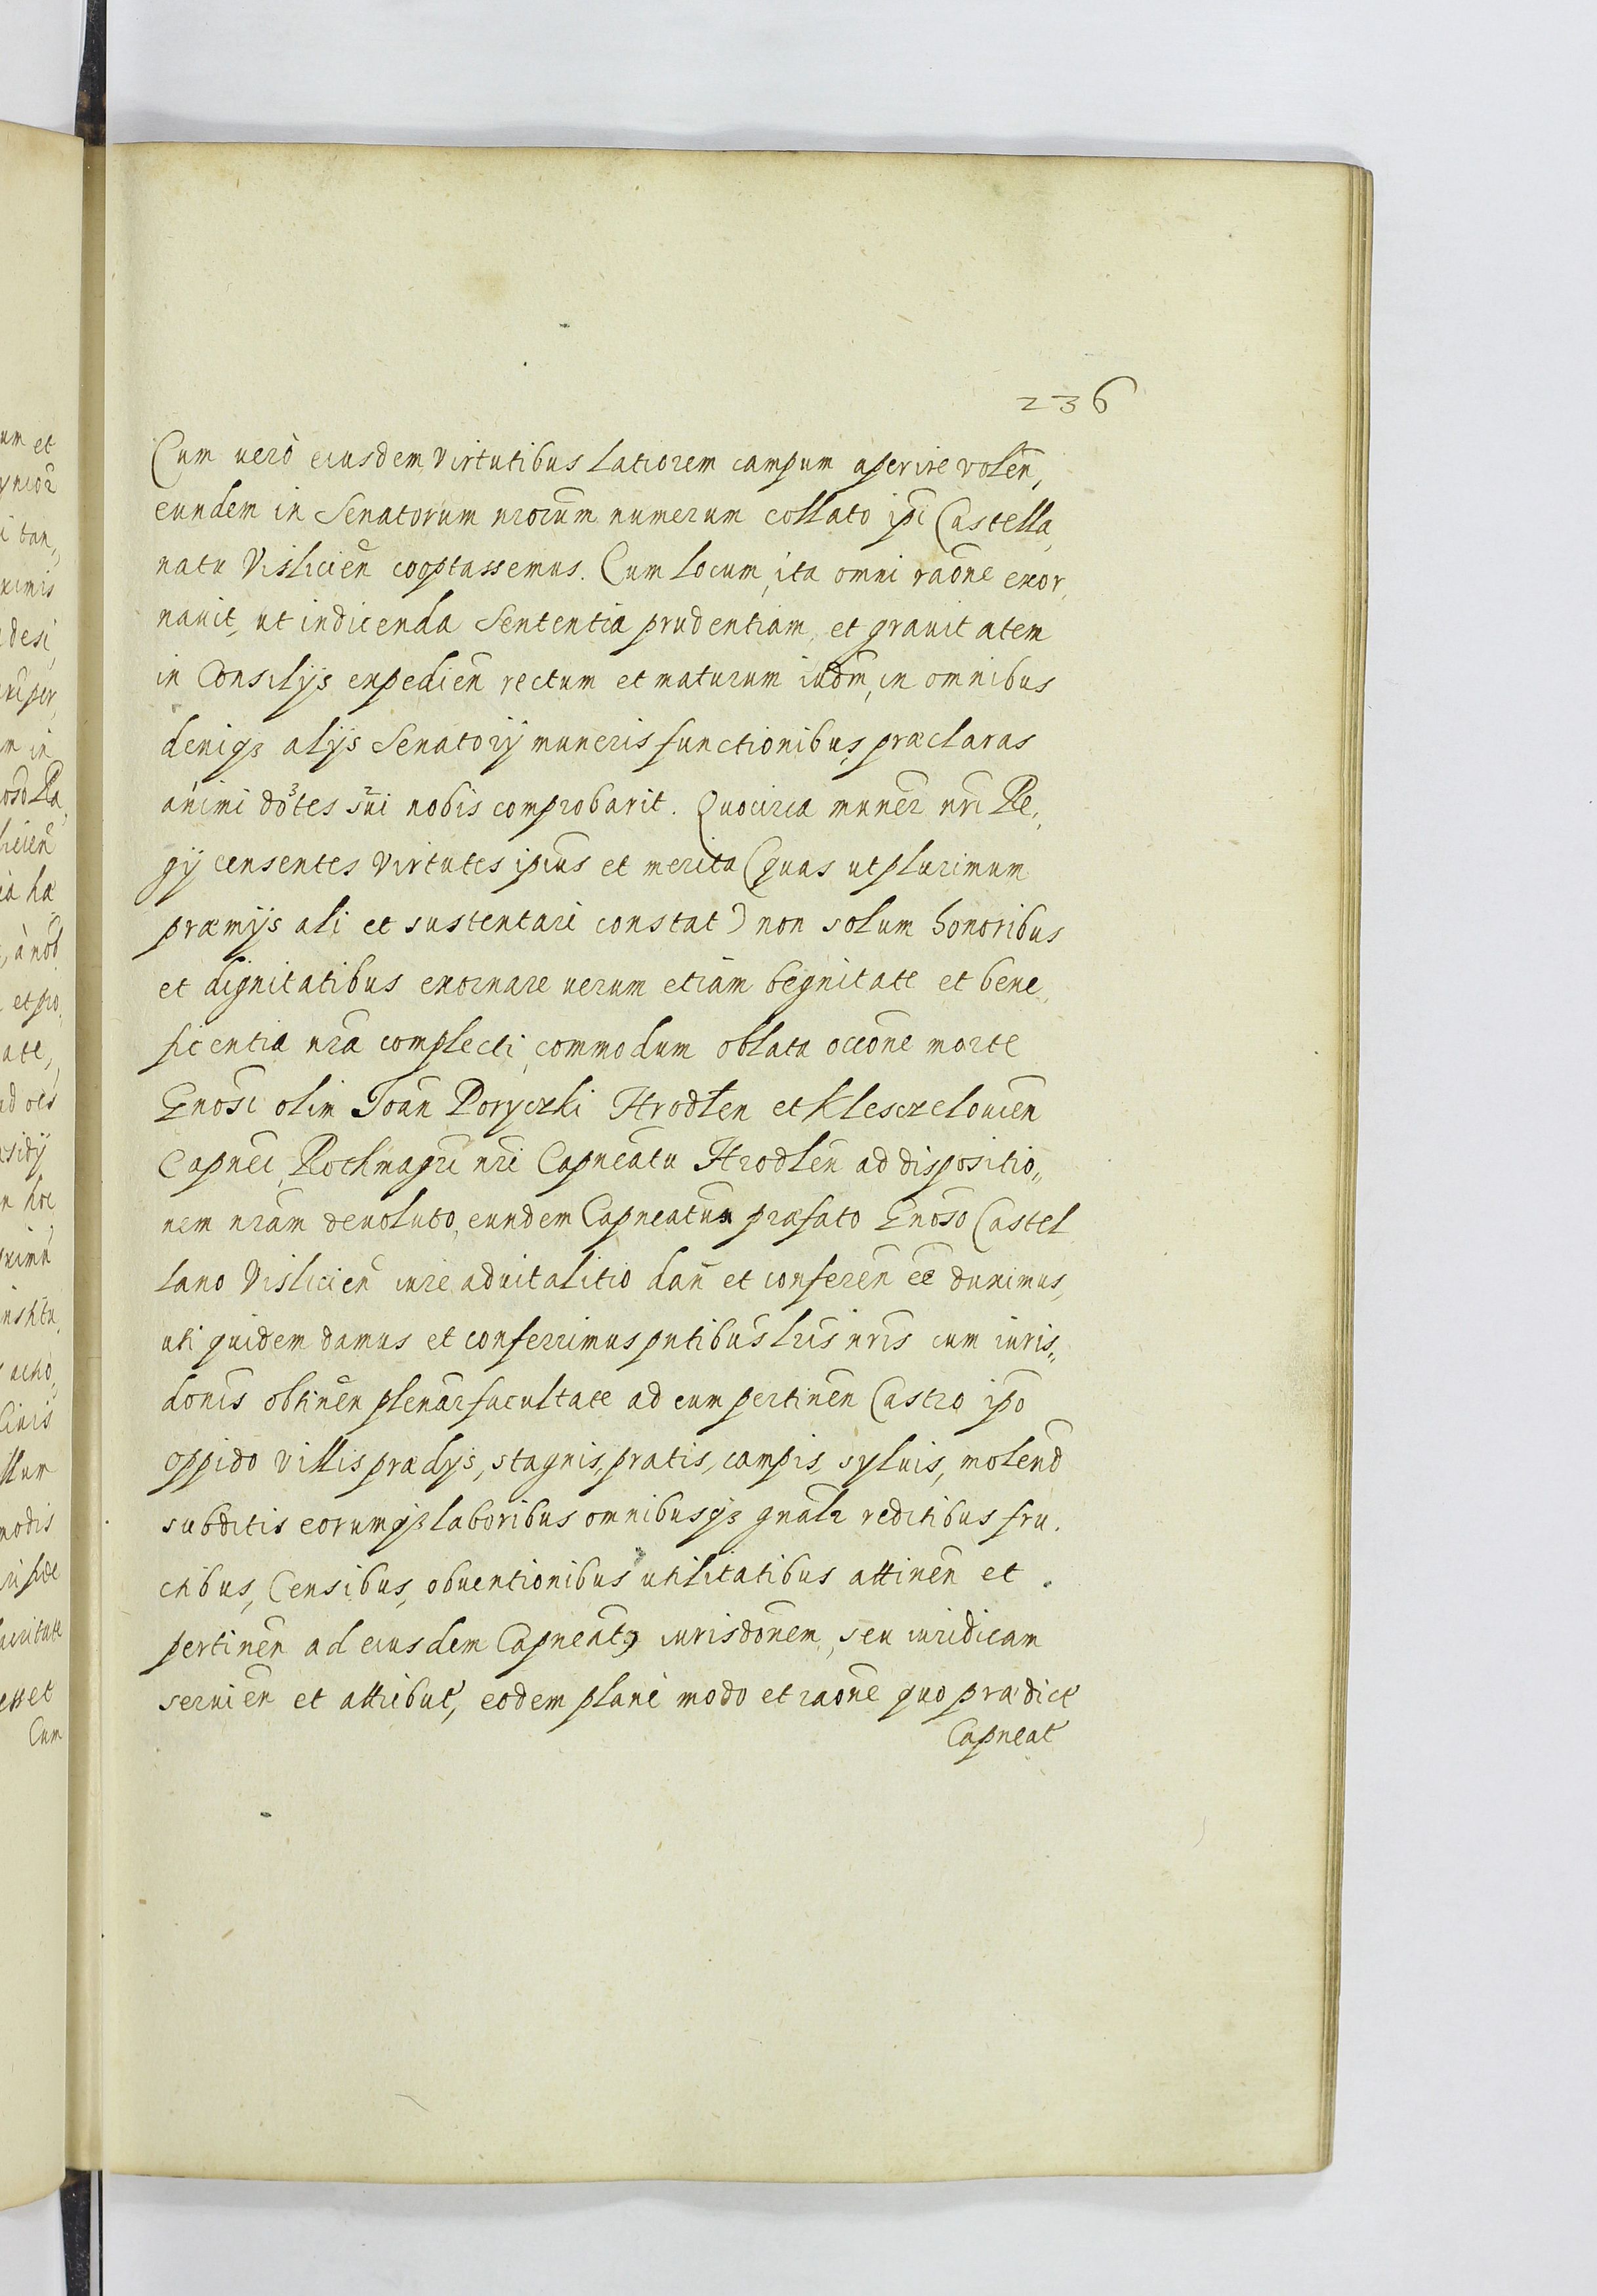 236
Cum uerò eiusdem virtutibus latiorem campum aperire volen̄,
eundem in Senatorum nrorum̄ numerum collato ipī Castella,
natu Vislicien̄ cooptassemus. Cum locum, ita omni raōne exor,
nauit, ut indicenda Sententia prudentiam, et grauitatem
in Consilijs expedien̄ rectum et maturum iudm̄, in omnibus
deniqз alijs Senatorij muneris functionibus, præclaras
animi dotes sui nobis comprobarit. Quocirca muner nrī Re,,
gij censentes virtutes ipius̄ et merita (quas ut plurimum
præmijs ali et sustentari constat) non solum honoribus
et dignitatibus exornare uerum etiam begnitate et bene,
ficentia nrā complecti, commodum oblata occōne morte
Gnosī olim Joan̄ Poryczki Hrodlen et Klesczelouien̄
Capnei, Rothmagrī nrī Capneatu Hrodlen̄ ad dispositio,,
nem nrām deuoluto, eundem Capneatum præfato Gnosō Castel
lano Vislicien̄ iure aduitalitio dan̄ et conferen̄ eē duximus,
uti quidem damus et conferrimus pntibus̄ lrīs nrīs cum iuris,,
donīs obtinen̄ plenar facultate ad eum pertinen̄ Castro ipō
oppido villis prædijs, stagnis, pratis, campis, syluis, molend̄
subditis eorumqз laboribus omnibusqз gnalr reditibus fru.
ctibus, Censibus, obuentionibus utilitatibus attinen̄ et
pertinen̄ ad eiusdem Capneatꝯ iurisdonēm, seu iuridicam
seruien̄ et attribut̄, eodem planè modo et raōne quo prædict̄
Capneat̄
um et
i tan,,
ximis
desi,
m in
ia hæ
et pro,
ate,
ad oēs
n hoc
Civis
llum
modis
esset
Cum